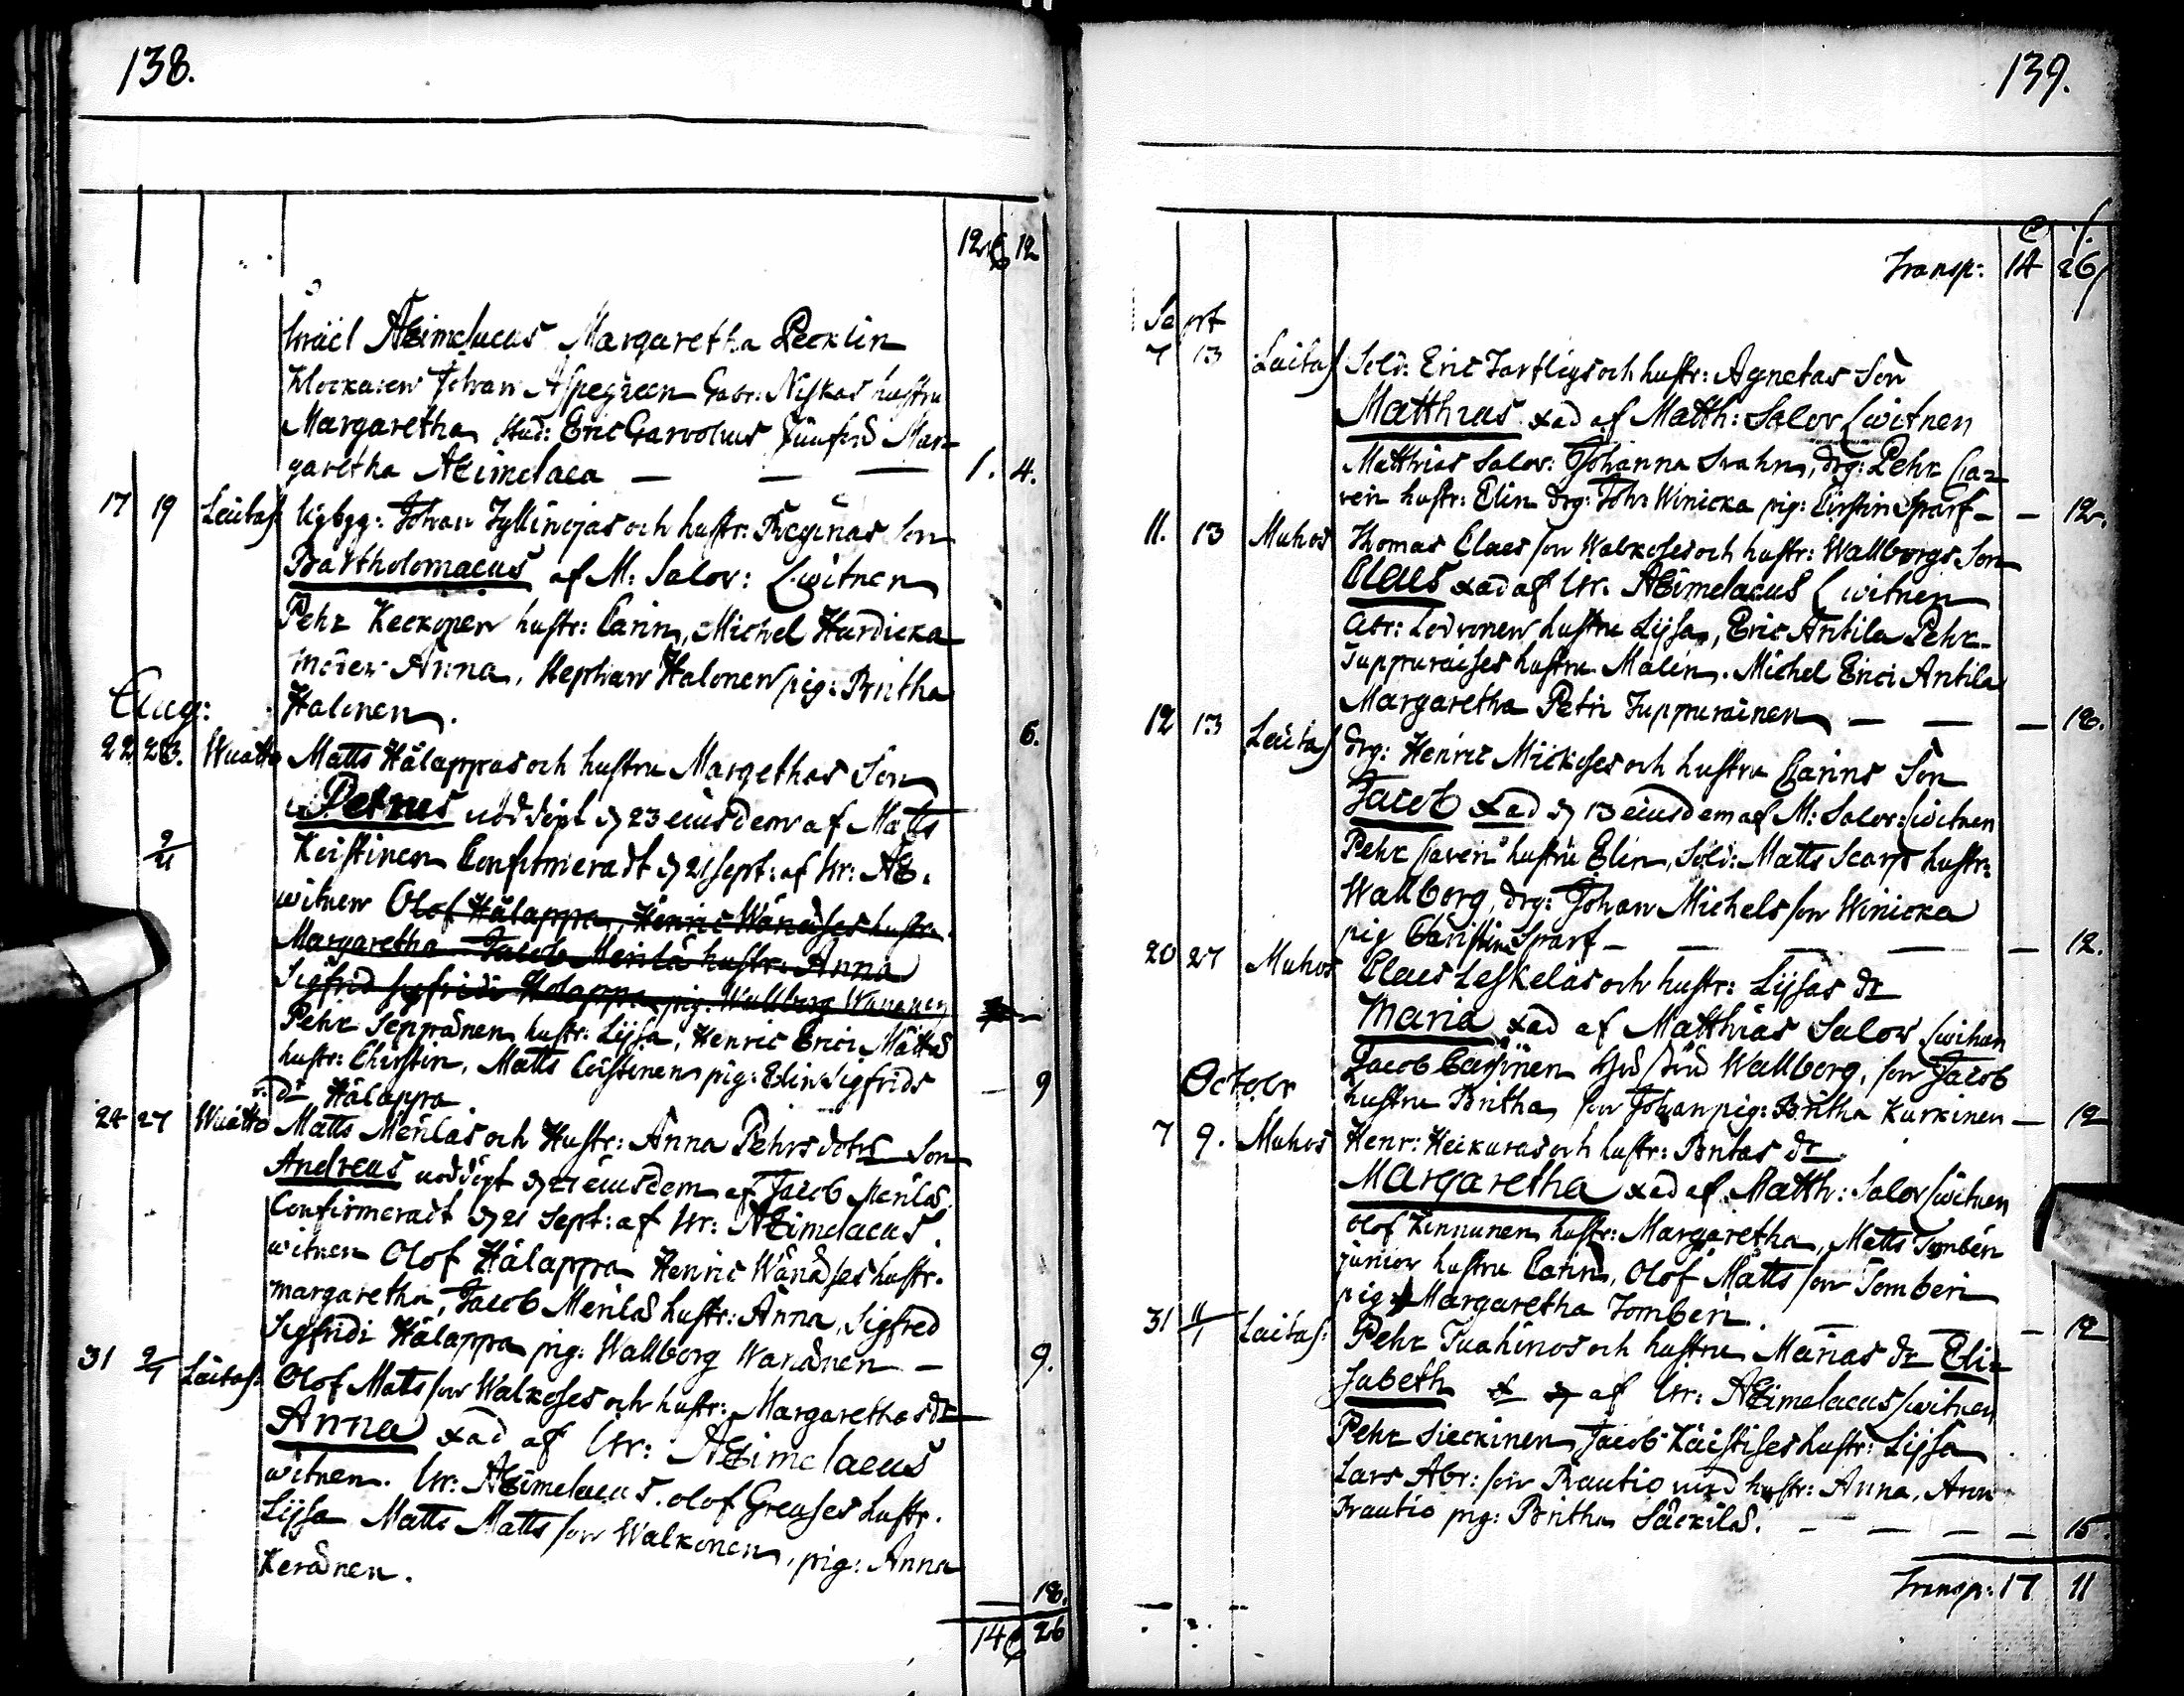 138.
12 12
Israël Aeimelaeus Margaretha Pecklin
Klockaren Johan Aspegreen Gabr: Niskas hustru
Margaretha Stud: Eric Garvolius Jungfrud Mar-
garetha Aeimelaea — — — 1. 4.
17 19 Laitas: och hustr: Reginas son
Bartholomaeus af M: Salov: witnen
Pehr Keckonen hustr: Carin, Michel Hurdicka
Anna, Stephan Halonen pig: Britha
Aug: Halonen. 6.
22 23. Wuatto Matts Hålappas och hustru Margethas Son
Petrus nöddöpt d 23 eiusdem af Matts
9/21 Keistinen Confirmeradt d 21 Sept: af hr: AE.
witnen Olof Hålappa, Henric Wånäses hustru
Margaretha Jacob Merilä hustr: Anna
Sigfrid Sigfridi Holappa pig: Wallborg Wananen
Pehr Seppänen hustr: Lijsa, Henric Erici Måttas
hustr: Chirstin, Matts Ceistinen pig: Elin Sigfrids
dr Hålappa — 9
24 27 Wuatto Matts Merilas och Hustr: Anna Pehrsdotrs Son
Andreas nöddöpt d 27 eiusdem af Jacob Merilä
Confirmeradt d 21 Sept: af hr: AEimelaeus.
witnen Olof Hålappa Henric Wånäses hustr.
margaretha, Jacob Merilas hustr: Anna, Sigfred
Sigfridi Hålappa pig: Wallborg Wanånen — 9.
31 9/1 Laitas: Olof Mats son Walkoses och hustr: Margarethas dr
Anna xad af hr: AEimelaeus
witnen. hr: AEimelaeus. olof Greuses hustr.
Lijsa Matts Matts son Walkonen, pig: Anna
Keränen. — 18.
14 26
139.
Transp: 14 26
Sept
7 13 Laitas Sold: Eric och hustr: Agnetas Son
Matthias xad af Matth: Salov witnen
Matthias Salov: Johanna Svahn, drg: Pehr
hustr: Elin drg: Joh: Winicka pig: Cirstin Sparf — — 12.
11. 13 Muhos Thomas Claes son Walkoses och hustr: Wallborgs Son
Claes xad af hr. AEimelaeus witnen
Abr: Lodvonen hustru Lijsa, Eric Antila Pehr
Tuppuraises hustru Malin. Michel Erici Antila
Margaretha Petri Tuppurainen — — — 18.
12 13 Laitas drg: Henric Mickoses och hustru Carins Son
Jacob xad d 13 eiusdem af M: Salov: witnen
Pehr hustru Elin, Sold: Matts Scarp hustr:
Wallborg, drg: Johan Michels son Winicka
pig Christin Sparf — — — — 12.
20 27 Muhos Claes Leskelas och hustr: Lijsas dr
Maria xad af Matthias Salov witnen
Jacob Wallborg, son Jacob
October hustru Britha, son Johan pig: Britha Kurkinen — 12
7 9. Muhos Henr: Heickuras och hustr: Britas dr
Margaretha xad af Matth: Salov witnen
olof Kinnunen hustr: Margaretha, Matts Tomberi
junior hustru Carin, Olof Matts son Tomberi
pig: Margaretha Tomberi. — — — 12
31 11/1 Laitas: Pehr Tuahinos och hustru Marias dr Eli-
sabeth x d af hr: AEimelaeus witnen
Pehr Sieckinen Jacob Käistises hustr: Lijsa
Lars Abr: son Rautio med hustr: Anna,
Rautio pig: Britha Säckilä. — — — — 15.
Transp: 17 11